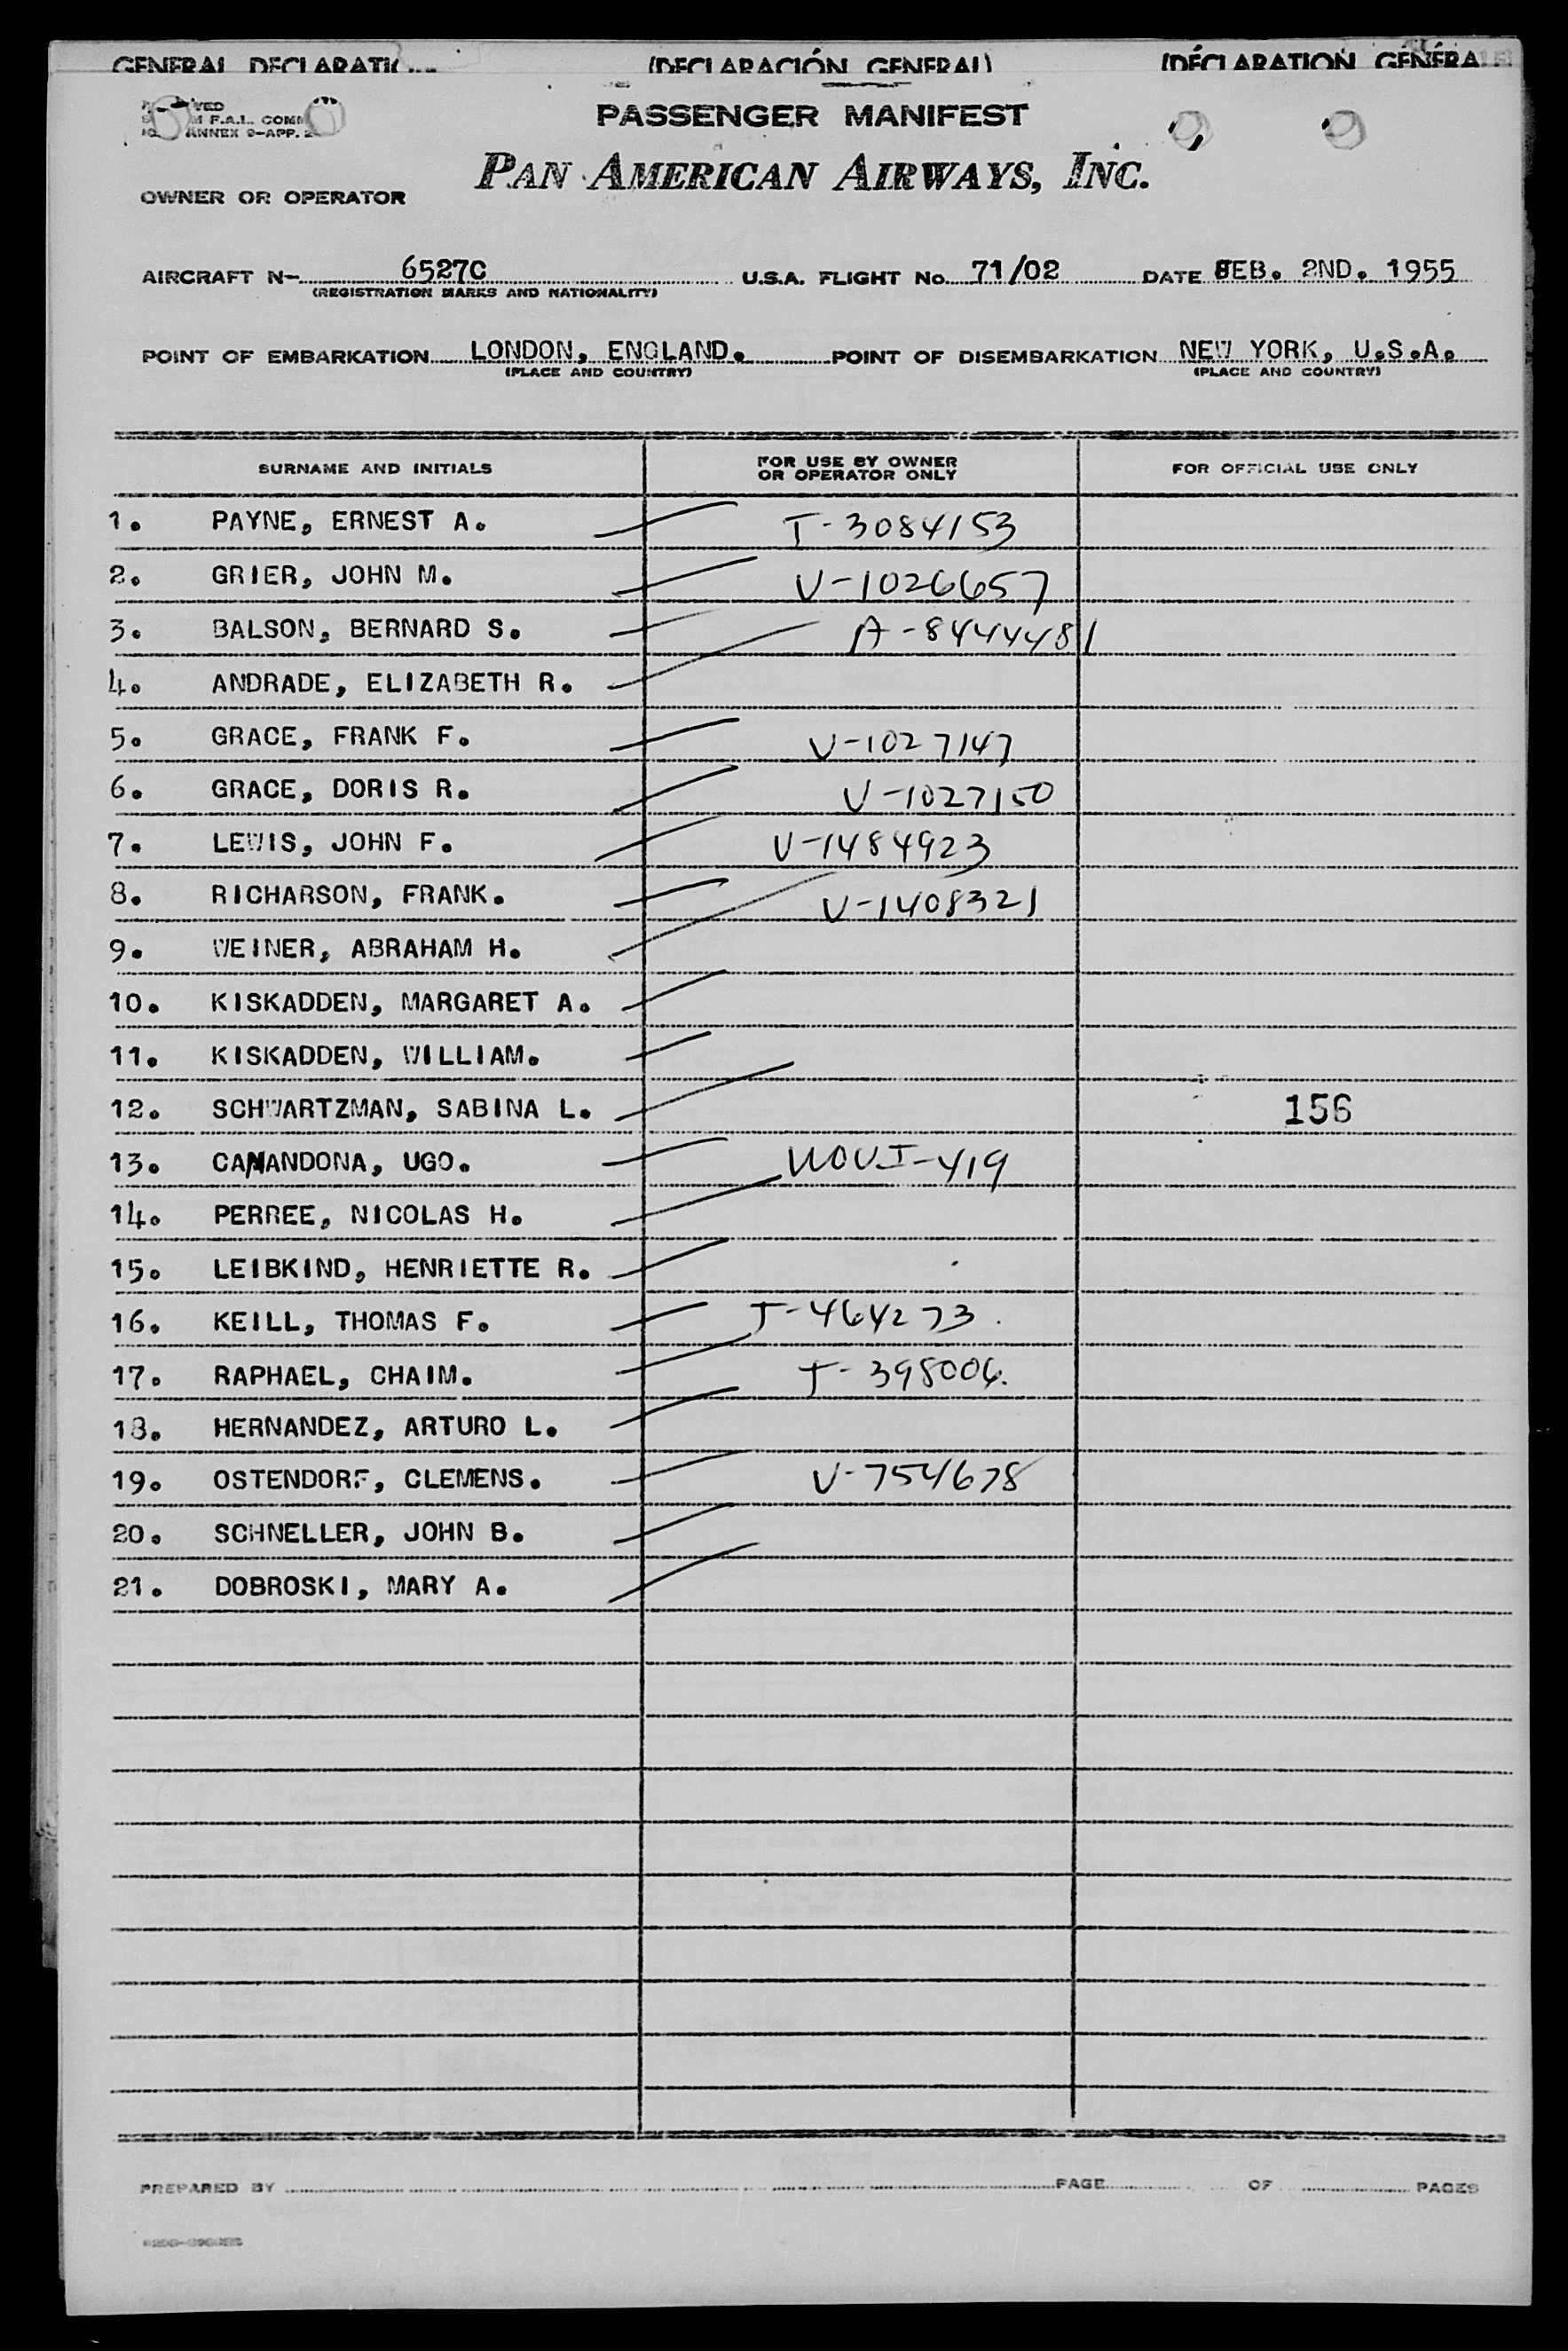 GENERAL DECLARATI (DECLARACIÓN GENERAL) (DÉCLARATION GÉNÉRA
VED
F.A.L. COMM
ANNEX 9-APP. 2
PASSENGER MANIFEST
PAN AMERICAN AIRWAYS, INC.
OWNER OR OPERATOR
AIRCRAFT N- 6527C U.S.A. FLIGHT No. 71/02 DATE FEB. 2ND. 1955
(REGISTRATION MARKS AND NATIONALITY)
POINT OF EMBARKATION LONDON, ENGLAND. POINT OF DISEMBARKATION NEW YORK, U.S.A.
(PLACE AND COUNTRY) (PLACE AND COUNTRY)
SURNAME AND INITIALS FOR USE BY OWNER OR OPERATOR ONLY FOR OFFICIAL USE ONLY
1. PAYNE, ERNEST A. T-3084153
2. GRIER, JOHN M. V-1026657
3. BALSON, BERNARD S. A-8444481
4. ANDRADE, ELIZABETH R.
5. GRACE, FRANK F. V-1027147
6. GRACE, DORIS R. V-1027150
7. LEWIS, JOHN F. V-1484923
8. RICHARSON, FRANK. V-1408321
9. WEINER, ABRAHAM H.
10. KISKADDEN, MARGARET A.
11. KISKADDEN, WILLIAM.
12. SCHWARTZMAN, SABINA L. 156
13. CANANDONA, UGO. UOUI-419
14. PERREE, NICOLAS H.
15. LEIBKIND, HENRIETTE R.
16. KEILL, THOMAS F. T-464273.
17. RAPHAEL, CHAIM. T-398006.
18. HERNANDEZ, ARTURO L.
19. OSTENDORF, CLEMENS. V-754678
20. SCHNELLER, JOHN B.
21. DOBROSKI, MARY A.
PREPARED BY PAGE OF PAGES